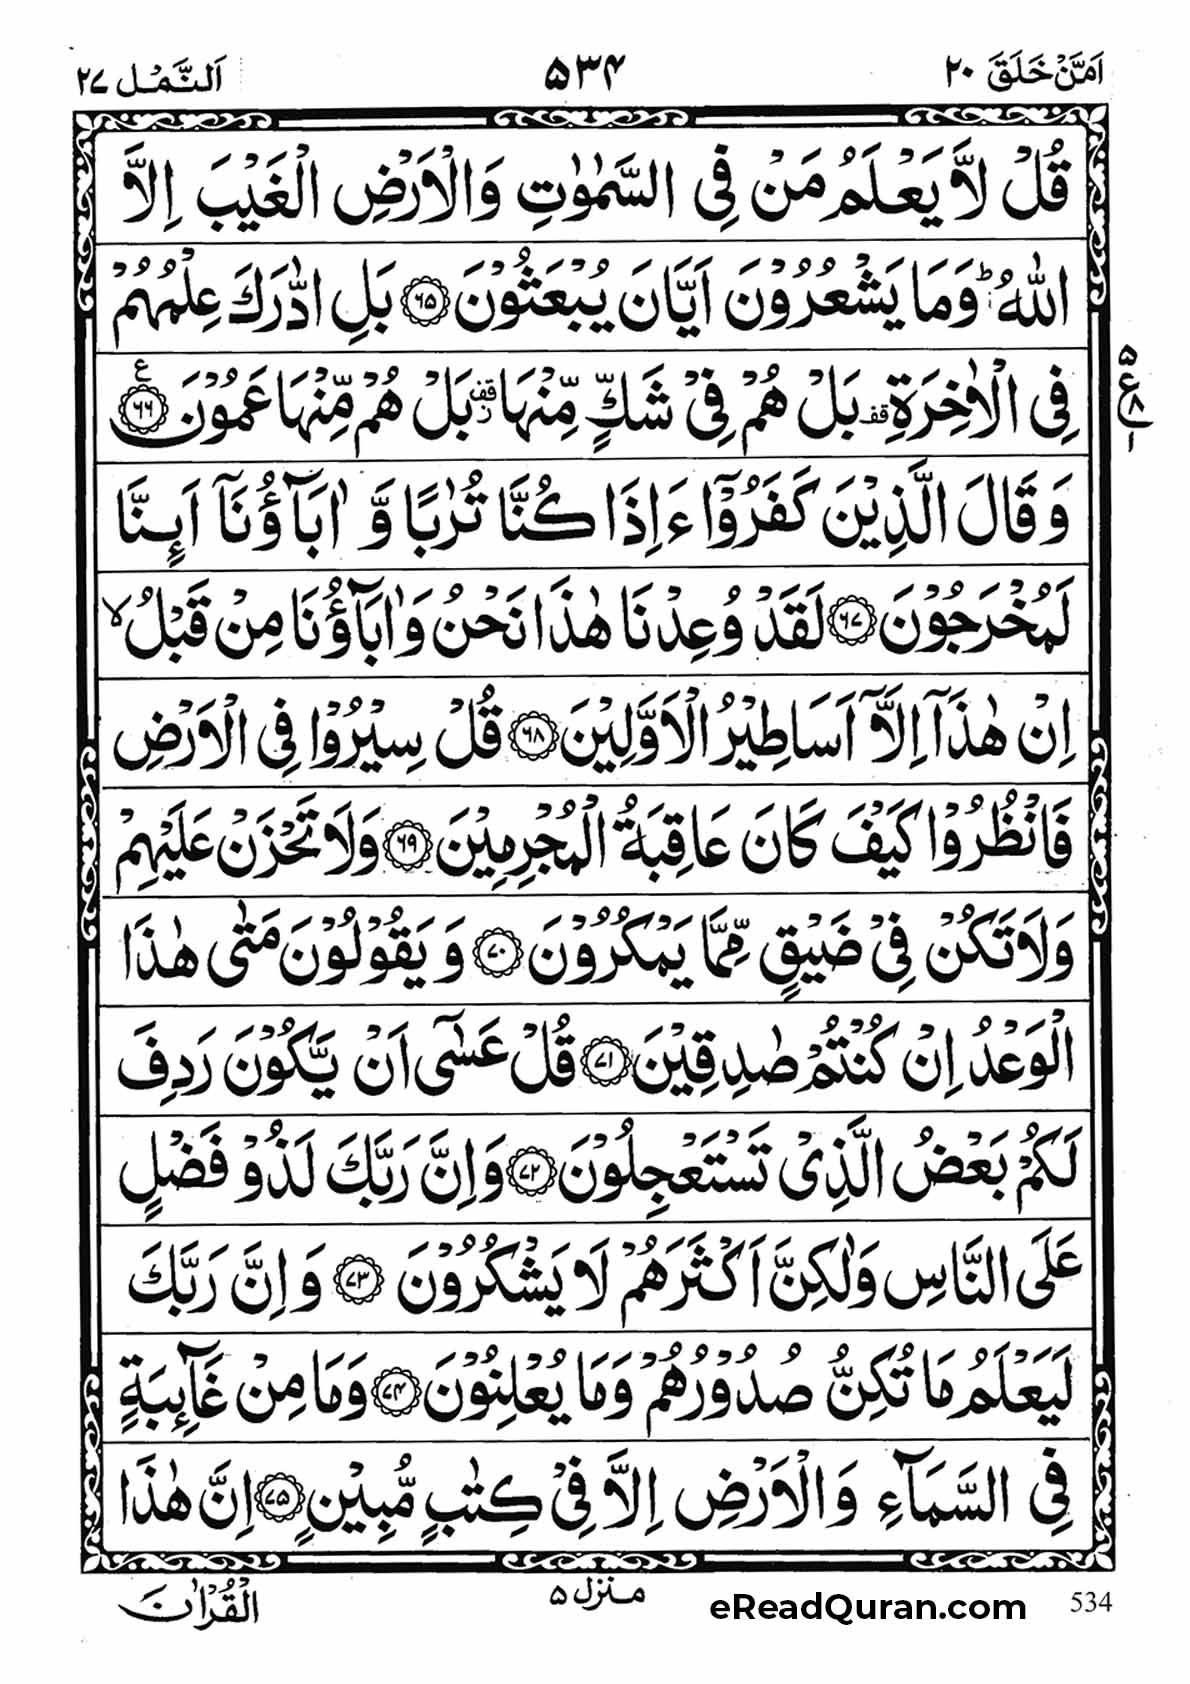 اَمَّنْ خَلَقَ ٢٠ ٥٣٤ اَلنَّمْل ٢٧
قُلْ لَّا يَعْلَمُ مَنْ فِى السَّمٰوٰتِ وَالْاَرْضِ الْغَيْبَ اِلَّا
اللّٰهُ ؕ وَمَا يَشْعُرُوْنَ اَيَّانَ يُبْعَثُوْنَ ﴿٦٥﴾ بَلِ ادّٰرَكَ عِلْمُهُمْ
فِى الْاٰخِرَةِ قف بَلْ هُمْ فِىْ شَكٍّ مِّنْهَا قف ز بَلْ هُمْ مِّنْهَا عَمُوْنَ ﴿٦٦﴾ ع
وَقَالَ الَّذِيْنَ كَفَرُوْٓا ءَاِذَا كُنَّا تُرٰبًا وَّاٰبَآؤُنَآ اَئِنَّا
لَمُخْرَجُوْنَ ﴿٦٧﴾ لَقَدْ وُعِدْنَا هٰذَا نَحْنُ وَاٰبَآؤُنَا مِنْ قَبْلُ ۙ
اِنْ هٰذَآ اِلَّآ اَسَاطِيْرُ الْاَوَّلِيْنَ ﴿٦٨﴾ قُلْ سِيْرُوْا فِى الْاَرْضِ
فَانْظُرُوْا كَيْفَ كَانَ عَاقِبَةُ الْمُجْرِمِيْنَ ﴿٦٩﴾ وَلَا تَحْزَنْ عَلَيْهِمْ
وَلَا تَكُنْ فِىْ ضَيْقٍ مِّمَّا يَمْكُرُوْنَ ﴿٧٠﴾ وَيَقُوْلُوْنَ مَتٰى هٰذَا
الْوَعْدُ اِنْ كُنْتُمْ صٰدِقِيْنَ ﴿٧١﴾ قُلْ عَسٰٓى اَنْ يَّكُوْنَ رَدِفَ
لَكُمْ بَعْضُ الَّذِىْ تَسْتَعْجِلُوْنَ ﴿٧٢﴾ وَاِنَّ رَبَّكَ لَذُوْ فَضْلٍ
عَلَى النَّاسِ وَلٰكِنَّ اَكْثَرَهُمْ لَا يَشْكُرُوْنَ ﴿٧٣﴾ وَاِنَّ رَبَّكَ
لَيَعْلَمُ مَا تُكِنُّ صُدُوْرُهُمْ وَمَا يُعْلِنُوْنَ ﴿٧٤﴾ وَمَا مِنْ غَآئِبَةٍ
فِى السَّمَآءِ وَالْاَرْضِ اِلَّا فِىْ كِتٰبٍ مُّبِيْنٍ ﴿٧٥﴾ اِنَّ هٰذَا
الْقُرْاٰنَ منزل ٥ eReadQuran.com 534